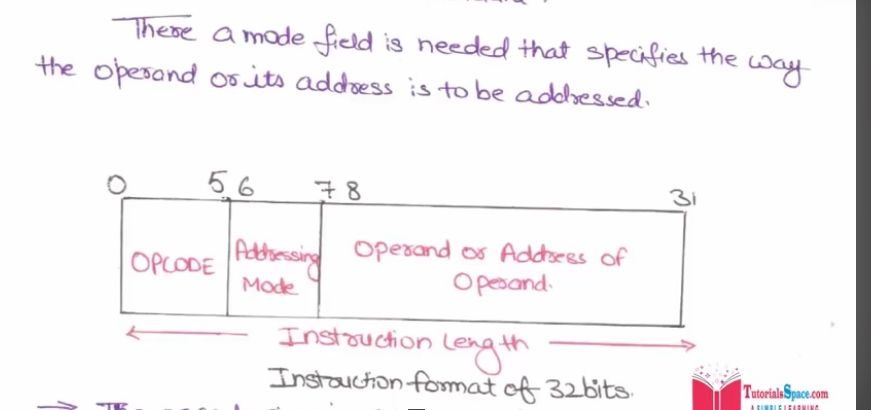 There a mode field is needed that specifies the way
the operand or its address is to be addressed.
0 5 6 7 8 31
OPCODE
Addressing
Mode
Operand or Address of
Operand.
Instruction length
Instruction format of 32bits.
TutorialsSpace.com
A SIMPLE LEARNING